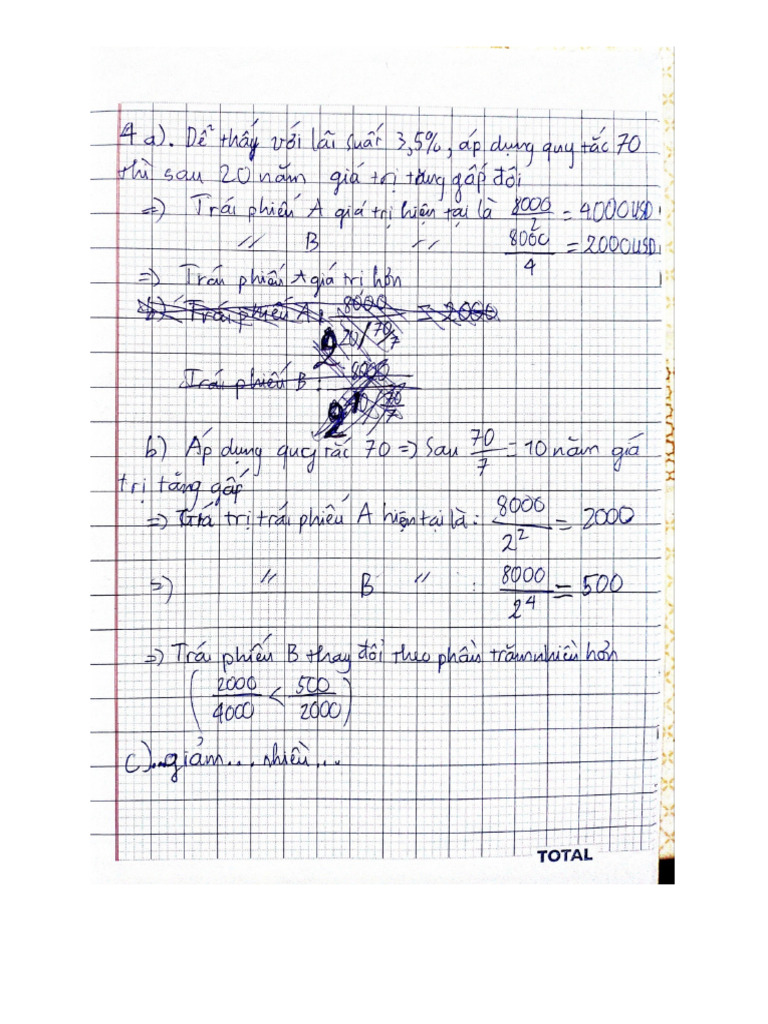 4 a). Dễ thấy với lãi suất 3,5%, áp dụng quy tắc 70
thì sau 20 năm giá trị tăng gấp đôi
=) Trái phiếu A giá trị hiện tại là 8000/2 = 4000USD
〃 B 〃 8000/4 = 2000USD
=) Trái phiếu A giá trị hơn
b) Áp dụng quy tắc 70 =) Sau 70/7 = 10 năm giá
trị tăng gấp
=) Giá trị trái phiếu A hiện tại là : 8000/2² = 2000
=) 〃 B 〃 : 8000/2⁴ = 500
=) Trái phiếu B thay đổi theo phần trăm nhiều hơn
(2000/4000 < 500/2000)
c)...giảm... nhiều...
TOTAL